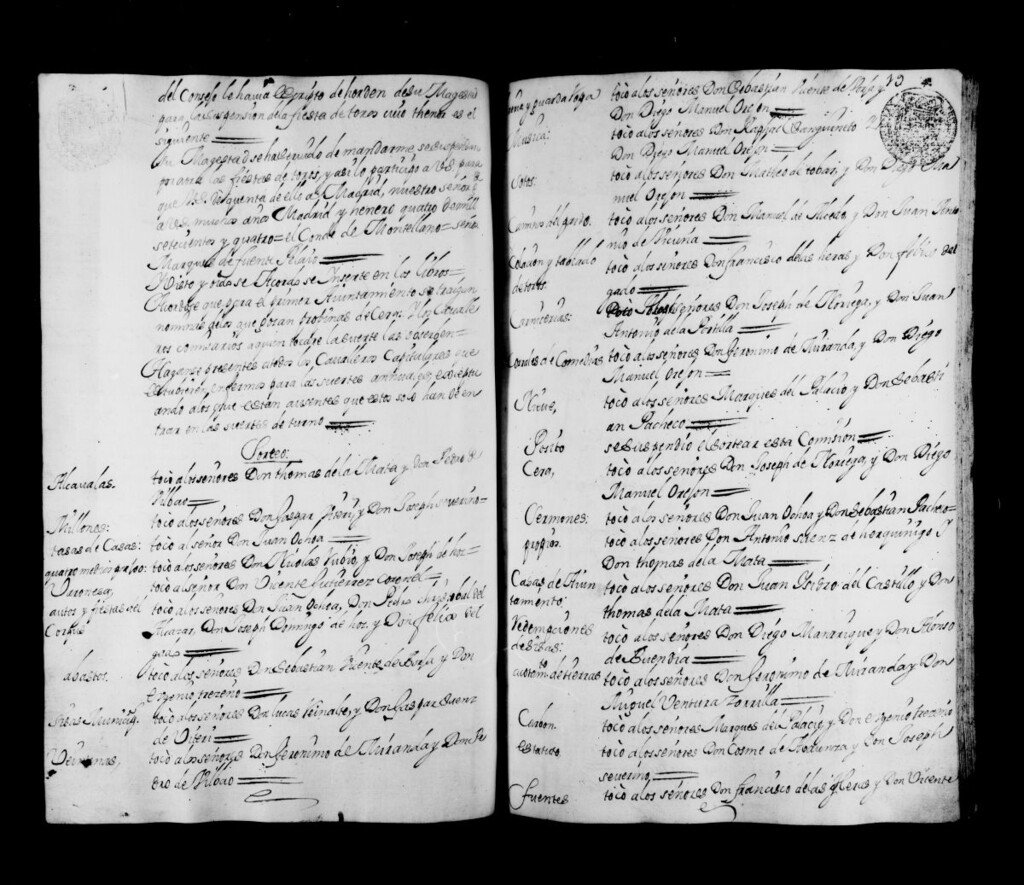 del Consejo le havia escripto de horden de su Magestad
para la suspension de la fiesta de toros cuio thenor es el
siguiente
Su Magestad se ha seruido de mandarme se suspendan
por aora las fiestas de toros, y asi lo participo a VS para
que VS. de quenta de ello a Madrid, nuestro señor g.e
a VS muchos años Madrid y henero quatro de mill
setecientos y quatro = el Conde de Montellano = señor
Marques de fuente Pelayo
Visto y oido se Acordo se Inserte en los libros
Acordose que para el primer Ayuntamiento se traigan
nominas de los que gozan propinas de Cera. Un Cavalle
ros comisarios a quien tocare la suerte las
Haganse presentes a todos los Cavalleros Capitulares que
estubieren enfermos para las suertes antiguas, exceptu
ando a los que estan ausentes que estos solo han de en
trar en las suertes de turno
Sorteo:
Alcavalas. toco a los señores Don thomas de la Mata y Don Pedro de
Bilbao
Millones: toco a los señores Don Gaspar y Don Joseph severino
tasas de Casas: toco al señor Don Juan Ochoa
quatro medios grados: toco a los señores Don Nicolas Rubio, y Don Joseph de hoz
toco al señor Don Vicente Gutierrez Coronel
autos y fiestas del toco a los señores Don Juan Ochoa, Don Pedro christobal del
Corpus Alcazar, Don Joseph Domingo de hoz y Don felix del
gado
abastos. toco a los señores Don Sebastian Puente de Rasa y Don
Eugenio trezeño
toco a los señores Don lucas y Don Gaspar Saenz
de Viteri
toco a los señores Don Geronimo de Miranda y Don Pe
dro de Bilbao
13
toco a los señores Don Sebastian Puente de Rasa y
y guardaropa Don Diego Manuel Orejon
Musica: toco a los señores Don Raphael Sanguineto
Don Diego Manuel Orejon
Sotos. toco a los señores Don Matheo de tobar, y Don Diego Ma
nuel Orejon
Camino del pardo. toco a los señores Don Manuel de y Don Juan Anto
nio de Vicuña
Colacion y tablado toco a los señores Don francisco de las heras y Don felix del
de toros. gado
Carnicerias: toco a los señores Don Joseph de Noriega, y Don Juan
Antonio de la Portilla
Corrales de Comedias toco a los señores Don Geronimo de Miranda, y Don Diego
Manuel Orejon
Nieve, toco a los señores Marques del Palacio y Don Sebasti
an Pacheco
Posito se suspendio el sortear esta Comision
Cera, toco a los señores Don Joseph de Noriega, y Don Diego
Manuel Orejon
Sermones: toco a los señores Don Juan Ochoa y Don Sebastian Pacheco
propios. toco a los señores Don Antonio saenz de herquinigo y
Don thomas de la Mata
Casas de Aiun toco a los señores Don Juan Isidro del Castillo y Don
tamiento: thomas de la Mata
Redempciones toco a los señores Don Diego Manrrique y Don Alonso
de sisas: de Buendia
custom de tierras toco a los señores Don Geronimo de Miranda y Don
Miguel Ventura Zorrilla
Carbon. toco a los señores Marques del Palacio y Don eugenio trezeño
estatido toco a los señores Don Cosme de y Don Joseph
severino
fuentes toco a los señores Don francisco de las Heras y Don Vicente